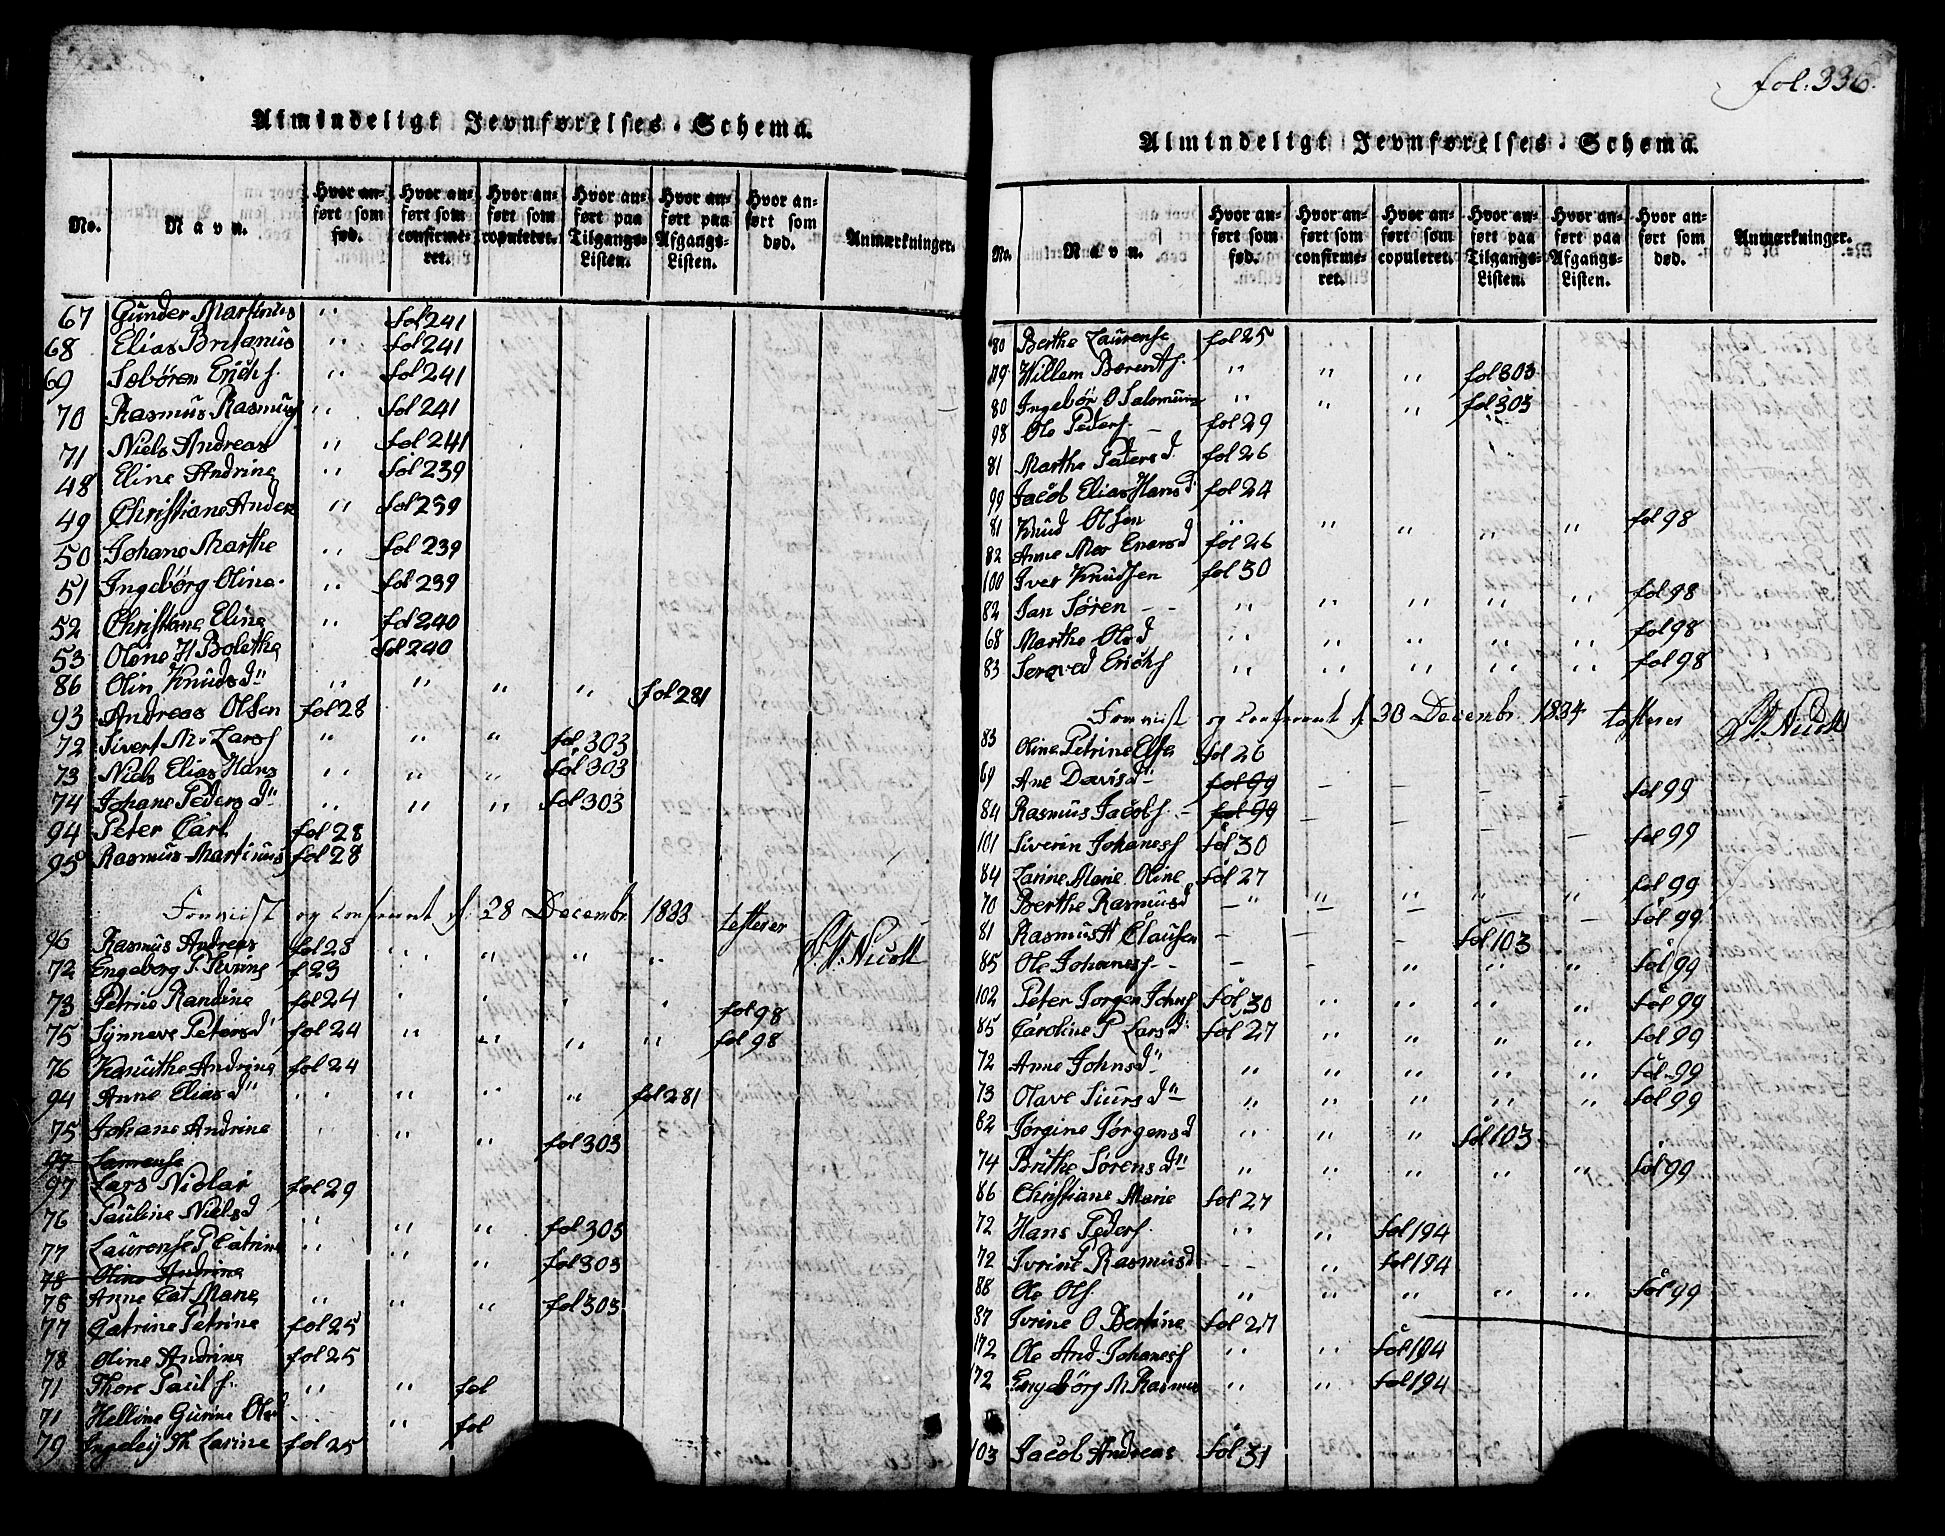 Almindeligt Jevnførelses-Schema.
No. Navn. Hvor anført som fød. Hvor anført som confirmeret. Hvor anført som copuleret. Hvor anført paa Tilgangs-Listen. Hvor anført paa Afgangs-Listen. Hvor anført som død. Anmærkninger.
67 Gunder Martinus " fol 241
68 Elias Britanus " fol 241
69 Sebøren Erichs. " fol 241
70 Rasmus Rasmus " fol 241
71 Niels Andreas " fol 241
48 Eline Andrine " fol 239
49 Christiane Anders " fol 239
50 Johane Marthe " fol 239
51 Ingebørg Oline " fol 239
52 Christiane Eline " fol 240
53 Olene H Bolethe fol 240
86 Olin Knudsd " " " " fol 281
93 Andreas Olsen fol 28
72 Sivert M. Larss " " " fol 303
73 Niels Elias Hans " " " fol 303
74 Johane Pedersd " " " fol 303
94 Peter Carl fol 28
95 Rasmus Martinus fol 28
og confirmt d. 28 Decembr 1833 testerer
96 Rasmus Andreas fol 28 " " " "
72 Engeborg P. Ivrine f 23
73 Petrine Randine fol 24 " " " " fol 98
75 Synneve Petersd fol 24 " " " " fol 98
76 Knuthe Andrine fol 24
94 Anne Eliasd " " " " fol 281
75 Johane Andrine " " " fol 303
97 Laurense
97 Lars Nicolai fol 29
76 Pauline Nielsd " " " fol 303
77 Laurense P Catrine " " " fol 303
78 Oline Andrine
78 Anne Cat Marie " " " fol 303
77 Catrine Petrine fol 25
78 Oline Andrine fol 25
71 Thore Pauls. " " fol
71 Helline Gurine Olsd " fol
79 Th Larine fol 25
fol. 336.
Almindeligt Jevnførelses-Schema.
No. Navn. Hvor anført som fød. Hvor anført som confirmeret. Hvor anført som copuleret. Hvor anført paa Tilgangs-Listen. Hvor anført paa Afgangs-Listen. Hvor anført som død. Anmærkninger.
80 Berthe Laurense fol 25
79 Willem Berenths. " " " fol 303
80 Ingebør O Salomuns " " " fol 303
98 Ole Peders. fol 29
81 Marthe Petersd fol 26
99 Jacob Elias Hansd fol 24
81 Knud Olsen " " " " " fol 98
82 Anne Mar Enersd fol 26
100 Iver Knudsen fol 30
82 Jan Søren " " " " " fol 98
68 Marthe Olsd " " " " " fol 98
83 Erichs " " " " " fol 98
og confirmt d 30 Decembr. 1834 testerer
83 Oline Petrine Else fol 26
69 Ane Davisd fol 99 - - - - fol 99
84 Rasmus Jacobs. fol 99 - - - - fol 99
101 Siverin Johaness fol 30
84 Larine Marie Oline fol 27 fol 99
70 Berthe Rasmusd " " " " " fol 99
81 Rasmus H Clausen - - - fol 103
85 Ole Johaness - - " " " fol 99
102 Peter Jørgen Johns fol 30 " " " " fol 99
85 Caroline P Larsd fol 27 " " " " fol 99
72 Anne Johnsd " " " " " fol 99
73 Olave Siursd " " " " " fol 99
82 Jørgine Jørgensd " " " fol 103
74 Brithe Sørensd " " " " " fol 99
86 Christiane Marie fol 27
72 Hans Peders. " " fol 194
72 Ivrine Rasmusd " " fol 194
88 Ole Ols. " " " " " fol 99
87 Ivrine O Bertine fol 27
72 Ole And Johaness " " fol 194
72 Engebørg M. Rasmus " " fol 194
103 Jacob Andreas fol 31